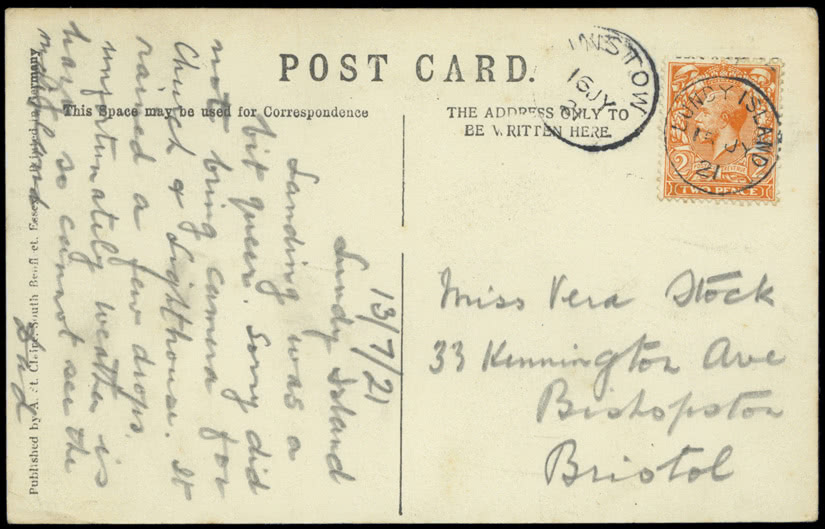 POST CARD.
This Space may be used for Correspondence
THE ADDRESS ONLY TO
BE WRITTEN HERE.
INSTOW
16 JY
LUNDY ISLAND
JY
21
TWO PENCE
13/7/21
Lundy Island
Landing was a
bit queer. Sorry did
not bring camera for
Church & Lighthouse. It
rained a few drops.
unfortunately weather is
hazy so cannot see the
mainland
Dad
Miss Vera Stock
33 Kennington Ave
Bishopston
Bristol
Published by A. St. Essex. Printed in Germany